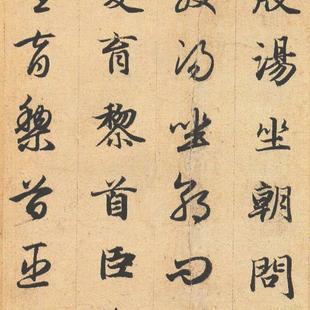 殷湯坐朝問
殷湯坐朝問
愛育黎首臣
育黎首臣